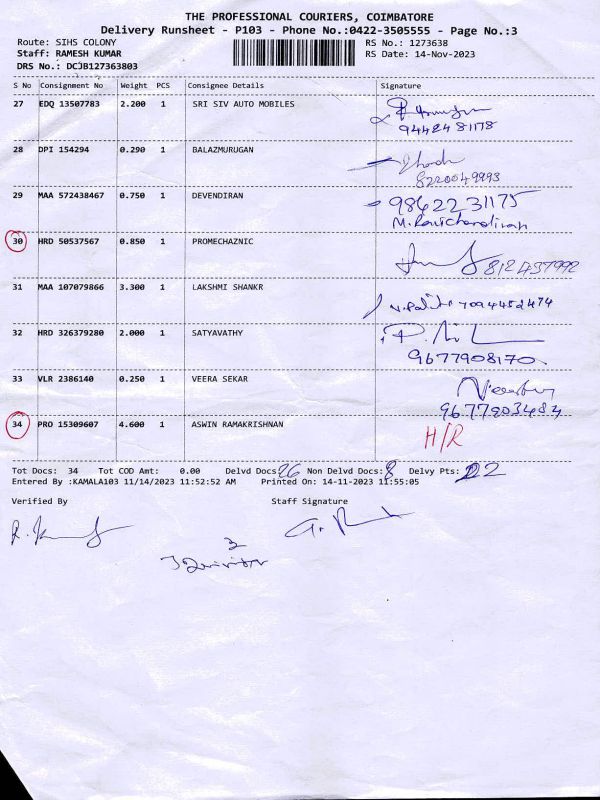 THE PROFESSIONAL COURIERS, COIMBATORE
Delivery Runsheet - P103 - Phone No.:0422-3505555 - Page No.:3
Route: SIHS COLONY RS No.: 1273638
Staff: RAMESH KUMAR RS Date: 14-Nov-2023
DRS No.: DCJB127363803
S No Consignment No Weight PCS Consignee Details Signature
27 EDQ 13507783 2.200 1 SRI SIV AUTO MOBILES
9442481178
28 DPI 154294 0.290 1 BALAZMURUGAN
8220049993
29 MAA 572438467 0.750 1 DEVENDIRAN 9862231175
M. Ravichandiran
30 HRD 50537567 0.850 1 PROMECHAZNIC
812437992
31 MAA 107079866 3.300 1 LAKSHMI SHANKR
7094452474
32 HRD 326379280 2.000 1 SATYAVATHY
9677908170
33 VLR 2386140 0.250 1 VEERA SEKAR
9677903484
34 PRO 15309607 4.600 1 ASWIN RAMAKRISHNAN H/R
Tot Docs: 34 Tot COD Amt: 0.00 Delvd Docs: 26 Non Delvd Docs: 8 Delvy Pts: 22
Entered By :KAMALA103 11/14/2023 11:52:52 AM Printed On: 14-11-2023 11:55:05
Verified By Staff Signature